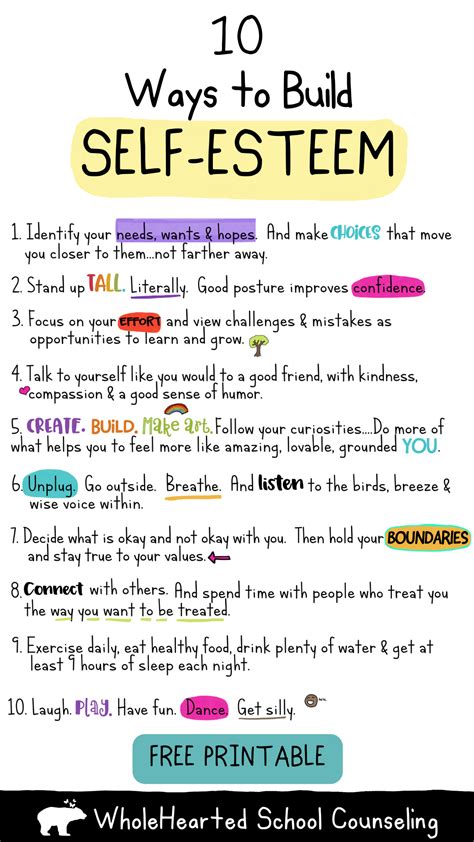 10
Ways to Build
SELF-ESTEEM
1. Identify your needs, wants & hopes. And make CHOICES that move
you closer to them...not farther away.
2. Stand up TALL. Literally. Good posture improves confidence.
3. Focus on your EFFORT and view challenges & mistakes as
opportunities to learn and grow.
4. Talk to yourself like you would to a good friend, with kindness,
compassion & a good sense of humor.
5. CREATE. BUILD. Make art. Follow your curiosities....Do more of
what helps you to feel more like amazing, lovable, grounded YOU.
6. Unplug. Go outside. Breathe. And listen to the birds, breeze &
wise voice within.
7. Decide what is okay and not okay with you. Then hold your BOUNDARIES
and stay true to your values.
8. Connect with others. And spend time with people who treat you
the way you want to be treated.
9. Exercise daily, eat healthy food, drink plenty of water & get at
least 9 hours of sleep each night.
10. Laugh. PLAY. Have fun. Dance. Get silly.
FREE PRINTABLE
WholeHearted School Counseling